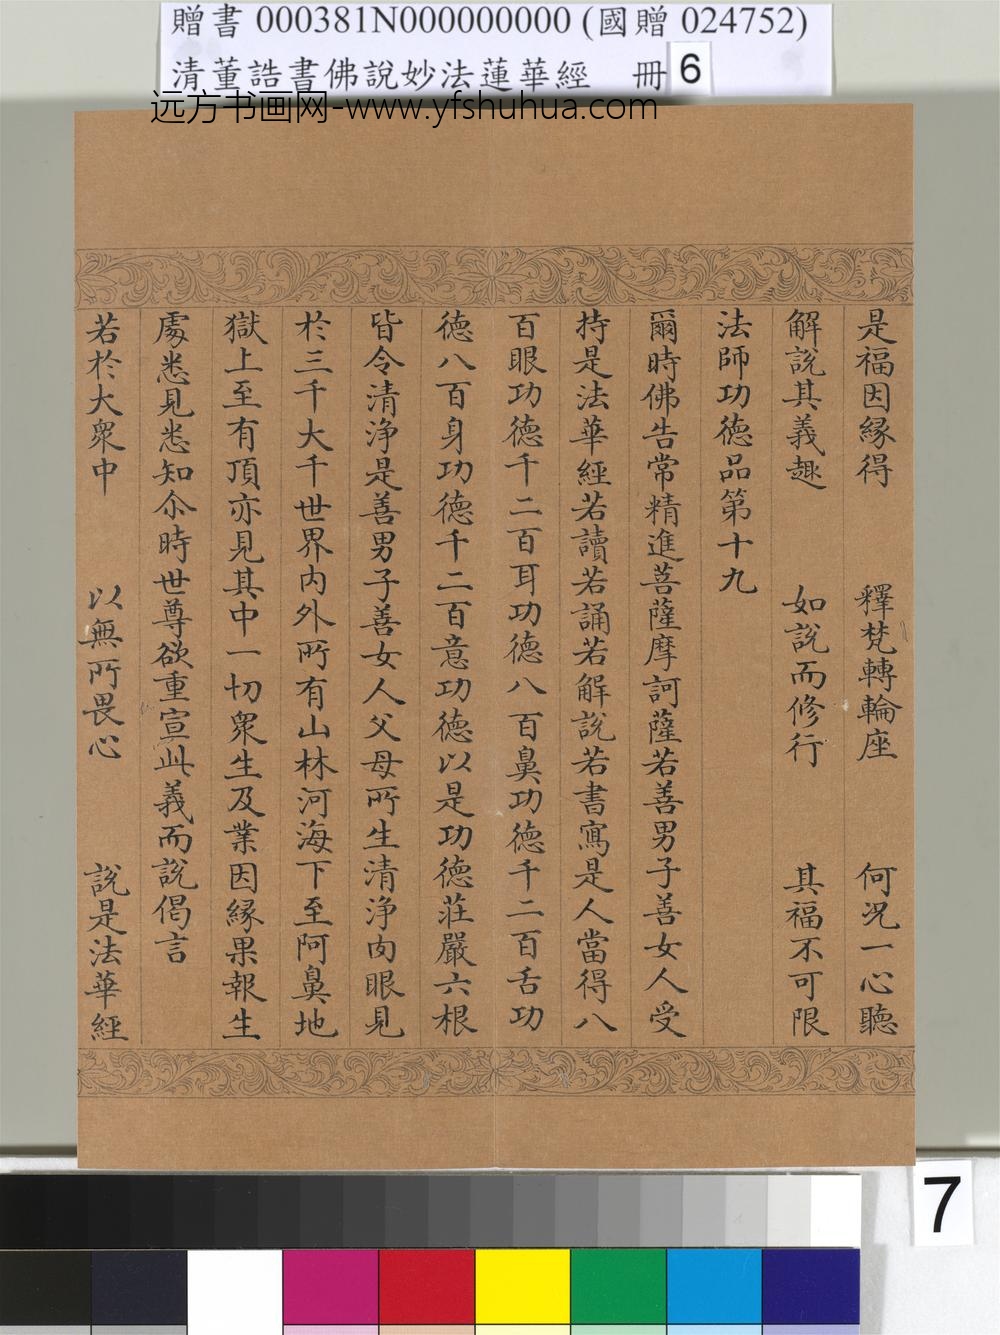 贈書 000381N000000000 (國贈 024752)
清董誥書佛說妙法蓮華經 冊 6
远方书画网-www.yfshuhua.com
是福因緣得 釋梵轉輪座 何況一心聽
解說其義趣 如說而修行 其福不可限
法師功德品第十九
爾時佛告常精進菩薩摩訶薩若善男子善女人受
持是法華經若讀若誦若解說若書寫是人當得八
百眼功德千二百耳功德八百鼻功德千二百舌功
德八百身功德千二百意功德以是功德莊嚴六根
皆令清淨是善男子善女人父母所生清淨肉眼見
於三千大千世界内外所有山林河海下至阿鼻地
獄上至有頂亦見其中一切衆生及業因緣果報生
處悉見悉知尒時世尊欲重宣此義而說偈言
若於大衆中 以無所畏心 說是法華經
7